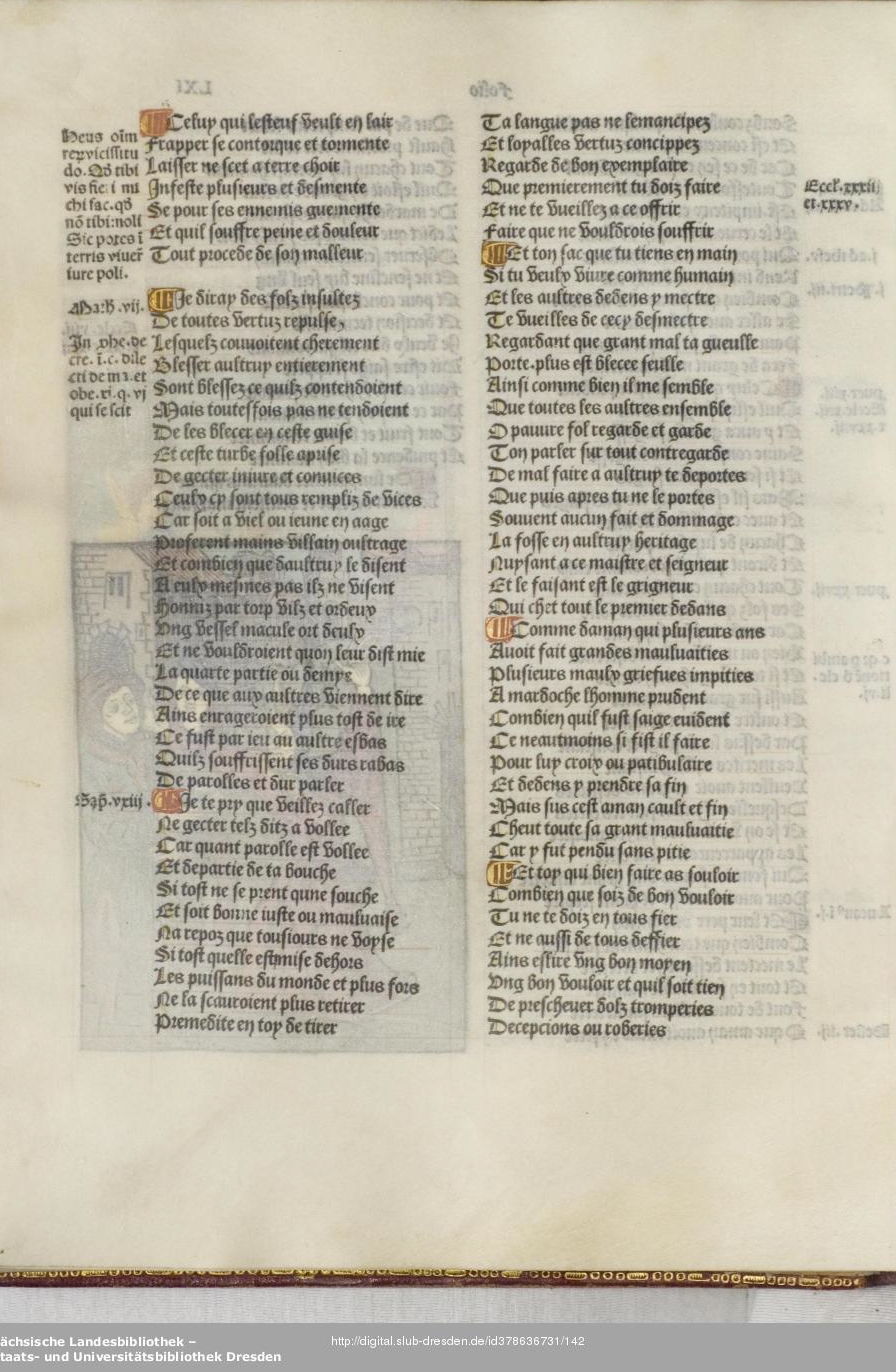 Celuy qui lesteuf veult en lair
Frapper se contorque et tormente
Laisser ne scet a terre choir
Infeste plusieurs et desmente
Se pour ses ennemis guemente
Et quil souffre peine et douleur
Tout procede de son malleur
Je diray des folz insultez
De toutes vertuz repulsez
Lesquelz couvoitent cherement
Blesser aultruy entierement
Sont blessez ce quilz contendoient
Mais toutesfois pas ne tendoient
De les blecer en ceste guise
Et ceste turbe folle aprise
De gecter iniure et convices
Ceulx cy sont tous rempliz de vices
Car soit a viel ou ieune en aage
Proferent mains villain oultrage
Et combien que daultruy le disent
A eulx mesmes pas ilz ne visent
Honniz par torp vilz et ordeux
Ung vessel macule ort deulx
Et ne vouldroient quon leur dist mie
La quarte partie ou demye
De ce que aux aultres viennent dire
Ains enrageroient plus tost de ire
Ce fust par ieu au aultre esbas
Quilz souffrissent ses durs rabas
De parolles et dur parler
Je te pry que veillez caller
Ne gecter telz ditz a vollee
Car quant parolle est vollee
Et departie de ta bouche
Si tost ne se prent qune souche
Et soit bonne iuste ou mauluaise
Na repoz que tousiours ne voyse
Si tost quelle est mise dehors
Les puissans du monde et plus fors
Ne la scauroient plus retirer
Premedite en toy de tirer
Heus oīm
rerꝫ vicissitu
do. Qđ tibi
vis fie: i mi
chi fac. qđ
nō tibi: noli
Sic potes ī
terris viuer̄
iure poli.
Math. vij.
In ꝓhe. de
cre. ī. c. dile
cti de m ꝛ. et
obe. xi. q. vj
qui se scit
Sap̄. xxiij.
Ta langue pas ne lemancipez
Et loyalles vertuz concippez
Regarde de bon exemplaire
Que premierement tu doiz faire
Et ne te vueillez a ce offrir
Faire que ne vouldrois souffrir
Et ton sac que tu tiens en main
Si tu veulx viure comme humain
Et les aultres dedens y mectre
Te vueilles de cecy desmectre
Regardant que grant mal ta gueulle
Porte. plus est blecee seulle
Ainsi comme bien il me semble
Que toutes les aultres ensemble
O pauure fol regarde et garde
Ton parler sur tout contregarde
De mal faire a aultruy te deportes
Que puis apres tu ne le portes
Souuent aucun fait et dommage
La fosse en aultruy heritage
Nuysant a ce maistre et seigneur
Et le faisant est le grigneur
Qui chet tout le premier dedans
Comme daman qui plusieurs ans
Auoit fait grandes mauluaities
Plusieurs maulx griefues impities
A mardoche lhomme prudent
Combien quil fust saige euident
Ce neautmoins si fist il faire
Pour luy croix ou patibulaire
Et dedens y prendre sa fin
Mais sus cest aman cault et fin
Cheut toute sa grant mauluaitie
Car y fut pendu sans pitie
Et toy qui bien faire as souloir
Combien que soiz de bon vouloir
Tu ne te doiz en tous fier
Et ne aussi de tous deffier
Ains eslire ung bon moyen
Ung bon vouloir et quil soit tien
De prescheuer dolz tromperies
Decepcions ou roberies
Eccl. xxxij
et. xxxv.
ächsische Landesbibliothek –
taats- und Universitätsbibliothek Dresden
http://digital.slub-dresden.de/id378636731/142